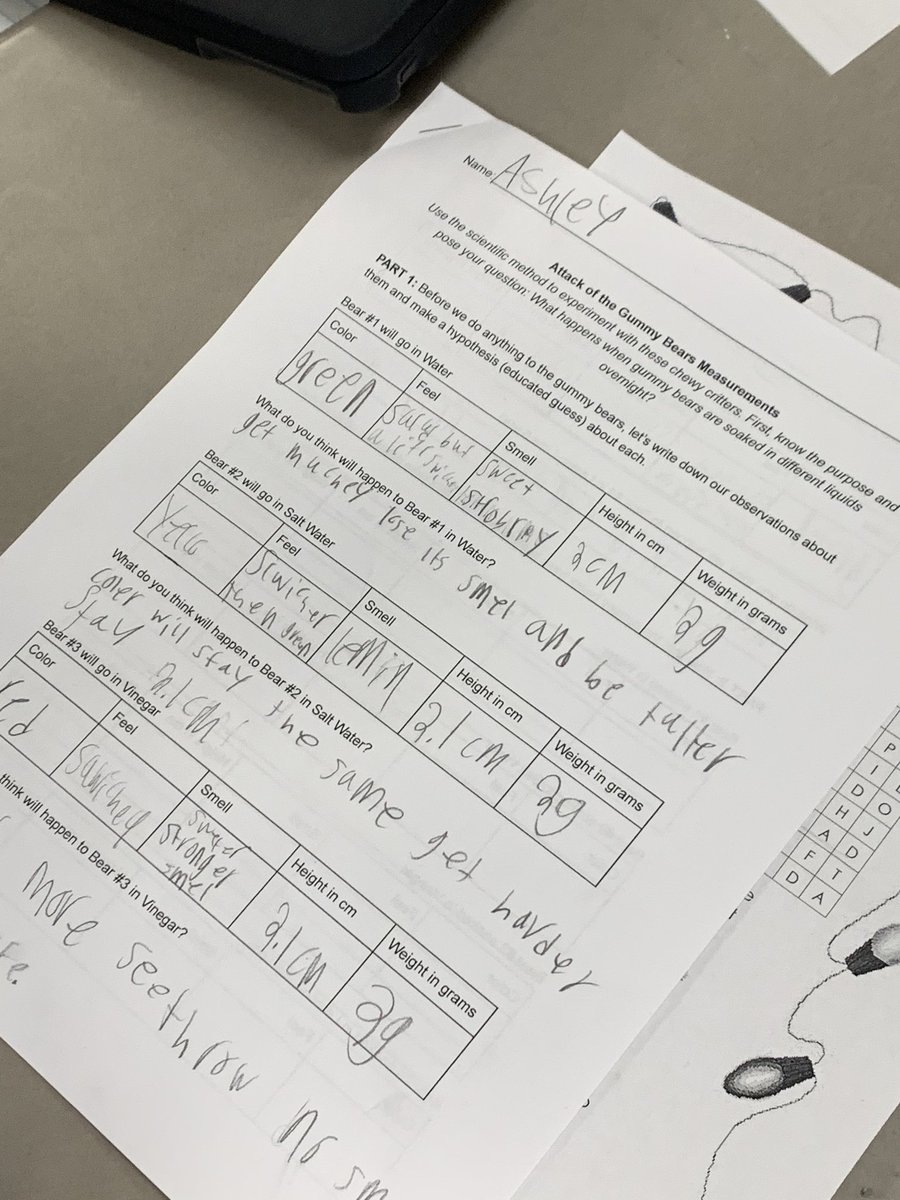 Name: Ashley
Attack of the Gummy Bears Measurements
Use the scientific method to experiment with these chewy critters. First, know the purpose and
pose your question: What happens when gummy bears are soaked in different liquids
overnight?
PART 1: Before we do anything to the gummy bears, let's write down our observations about
them and make a hypothesis (educated guess) about each.
Bear #1 will go in Water
Color Feel Smell Height in cm Weight in grams
green but sweet 2cm 2g
What do you think will happen to Bear #1 in Water?
get lose its smel and be
Bear #2 will go in Salt Water
Color Feel Smell Height in cm Weight in grams
then lemin 2.1cm 2g
What do you think will happen to Bear #2 in Salt Water?
coler will stay the same get harder
stay 2.1cm
Bear #3 will go in Vinegar
Color Feel Smell Height in cm Weight in grams
stronger 2.1cm 2g
smel
think will happen to Bear #3 in Vinegar?
More seethrow no sm
P
I
D O
H J
A D
F T
D A